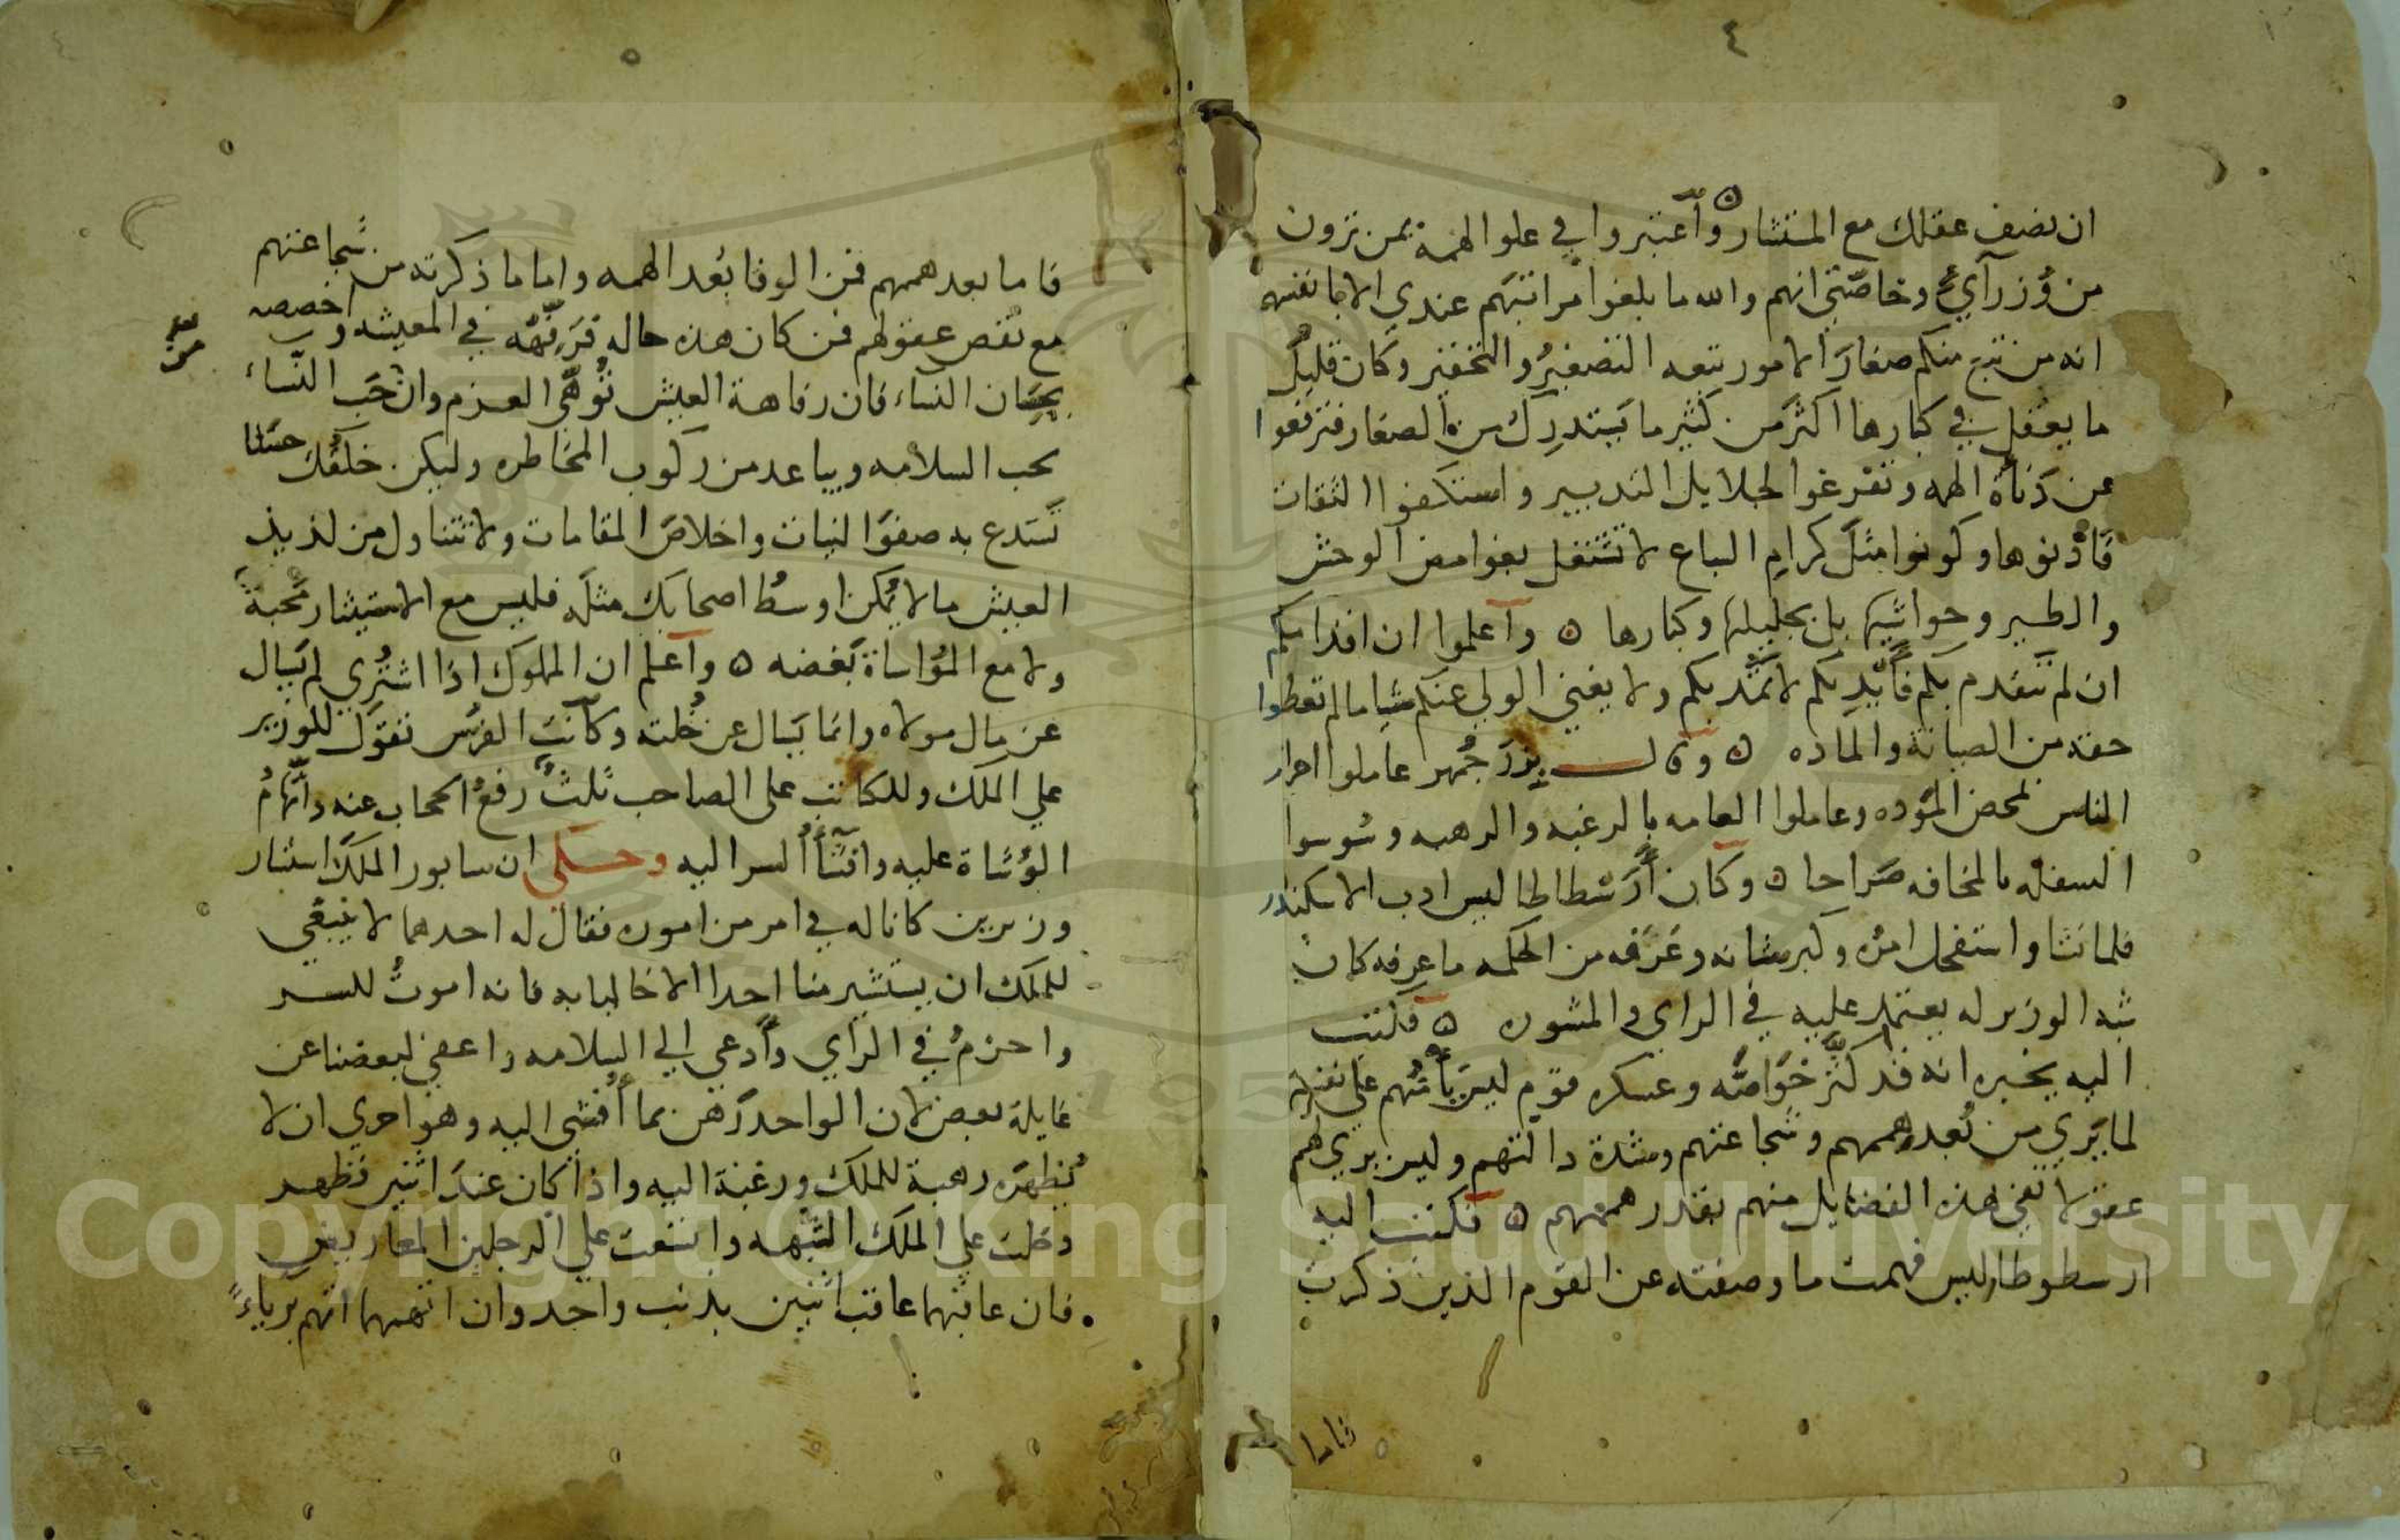 ٤
ان نصف عقلك مع المستشار ٥ واعتبروا في علو الهمة بمن ترون
من وزرآي وخاصتي انهم والله ما بلغوا مراتبهم عندي الا بانفسهم
انه من تتبع منكم صغار الامور تتبعه التصغير والتحقير وكان قليل
ما يعقل في كبارها اكثر من كثير ما يستدرك من الصغار فترفعوا
عن دناة الهمه وتفرغوا لجلايل التدبير واستكفوا الثقات
وكونوا مثل كرام السباع لا تشتغل بغوامض الوحش
والطير وحواشيها بل بجليلها وكبارها ٥ واعلموا ان اقدامكم
ان لم تتقدم بكم فايديكم لا تمتد بكم ولا يغني الولي عنكم شيا ما لم تعطوا
حقه من الصيانة والماده ٥ وقال بزرجمهر عاملوا احرار
الناس بمحض المؤده وعاملوا العامه بالرغبه والرهبه وسوسوا
السفله بالمخافه صراحا ٥ وكان ارسطاطاليس ادب الاسكندر
فلما نشا واستفحل امره وكبر شانه وعرفه من الحكمه ما عرفه كان
شبه الوزير له يعتمد عليه في الراي والمشوره ٥ فكتب
اليه يخبره انه قد كثر خواصه وعسكره قوم ليس يامنهم على نفسه
لما يري من بعد هممهم وشجاعتهم وشدة دالتهم وليس يري لهم
عقولا تفي هذه الفضايل منهم بقدر هممهم ٥ فكتب اليه
ارسطوطاليس فهمت ما وصفته عن القوم الذين ذكرت
فاما
فاما بعد هممهم فمن الوفا بعد الهمه واما ما ذكرته من شجاعتهم
مع نقص عقولهم فمن كان هذه حاله فرفهه في المعيشه واخصصه
بحسان النساء فان رفاهة العيش توهي العزم وان حب النساء
يحب السلامه ويباعد من ركوب المخاطره وليكن خلقك حسنا
تستدع به صفو النيات واخلاص المقامات ولا تتناول من لذيذ
العيش ما لا يمكن اوسط اصحابك مثله فليس مع الاستيثار محبة
ولا مع المؤاساة بغضه ٥ واعلم ان المملوك اذا اشتري لم يسال
عن مال مولاه وانما يسال عن خلقه وكانت الفرس تقول للوزير
علي الملك وللكاتب على الصاحب ثلث رفع الحجاب عنه واتهام
الوشاة عليه وافشا السر اليه وحكى ان سابور الملك استشار
وزيرين كانا له في امر من اموره فقال له احدهما لا ينبغي
للملك ان يستشير منا احدا الا خاليا به فانه اموت للسر
واحزم في الراي وادعي الي السلامه واعفى لبعضنا عن
غايلة بعض لان الواحد رهن بما افشي اليه وهو احري ان لا
يظهره رهبة للملك ورغبة اليه واذا كان عند اثنين فظهر
دخلت علي الملك الشبهه واتسعت علي الرجلين المعاريض
فان عاقبهما عاقب اثنين بذنب واحد وان اتهمهما اتهم برياء